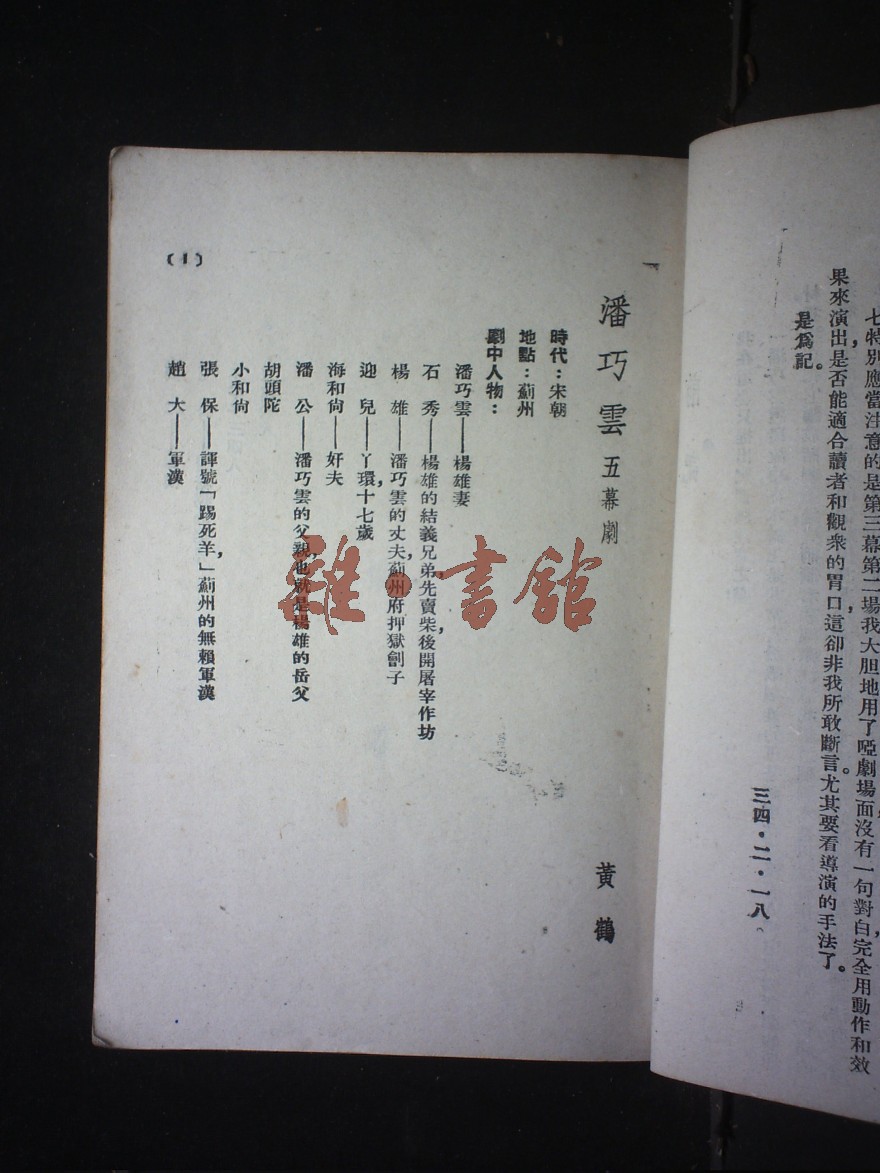 七特別應當注意的是第三幕第二場我大胆地用了啞劇場面,沒有一句對白,完全用動作和效
果來演出,是否能適合讀者和觀衆的胃口,這卻非我所敢斷言。尤其要看導演的手法了。
是爲記。
三四·二·一八。
潘巧雲 五幕劇
黃鶴
時代:宋朝
地點:薊州
劇中人物:
潘巧雲——楊雄妻
石 秀——楊雄的結義兄弟,先賣柴,後開屠宰作坊
楊 雄——潘巧雲的丈夫,薊州府押獄劊子
迎 兒——丫環,十七歲
海和尙——奸夫
潘 公——潘巧雲的父親,也就是楊雄的岳父
胡頭陀
小和尙
張 保——諢號「踢死羊,」薊州的無賴軍漢
趙 大——軍漢
(1)
雜·書館